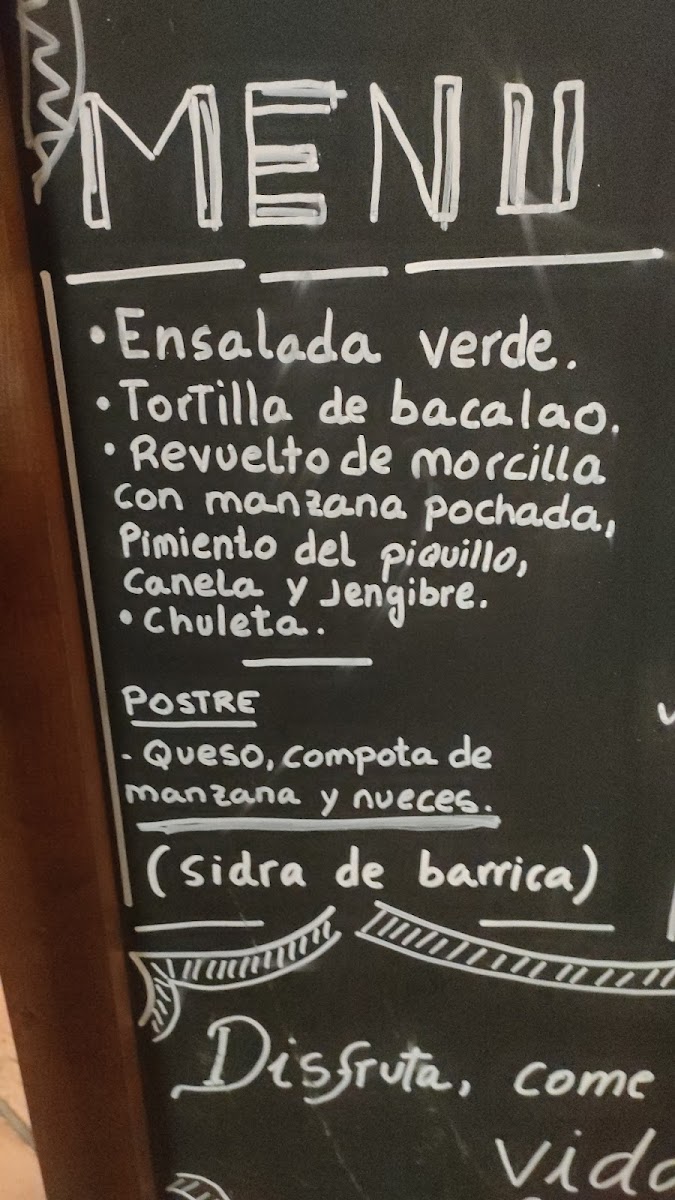 MENU
• Ensalada verde.
• Tortilla de bacalao.
• Revuelto de morcilla
con manzana pochada,
Pimiento del piquillo,
Canela y Jengibre.
• Chuleta.
POSTRE
- Queso, compota de
manzana y nueces.
(sidra de barrica)
Disfruta, come
vida